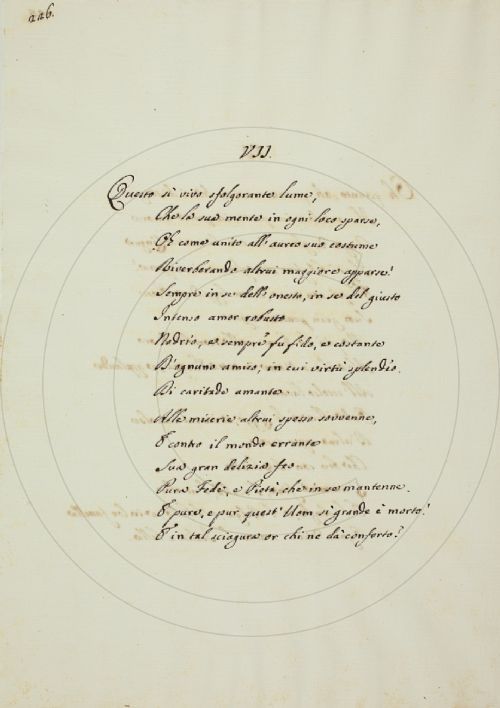 226.
VII.
Questo sì vivo sfolgorante lume,
Che la sua mente in ogni loco sparse,
Oh come unito all' aureo suo costume
Riverberando altrui maggiore apparse!
Sempre in se dell' onesto, in se del giusto
Intenso amor robusto
Nodrio, e sempre fu fido, e costante
D'ognuno amico, in cui virtù splendéo.
Di caritade amante
Alle miserie altrui spesso sovvenne,
E contro il mondo errante
Sua gran delizia feo
Pura Fede, e Pietà, che in se mantenne.
E pure, e pur quest' Uom sì grande è morto!
E in tal sciagura or chi ne dà conforto?